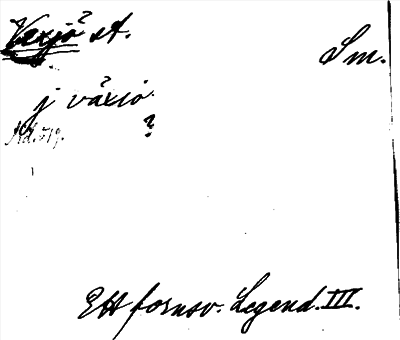 Växjö? st. Sm.
j växio
?
Ett fornsv. Legend. III.